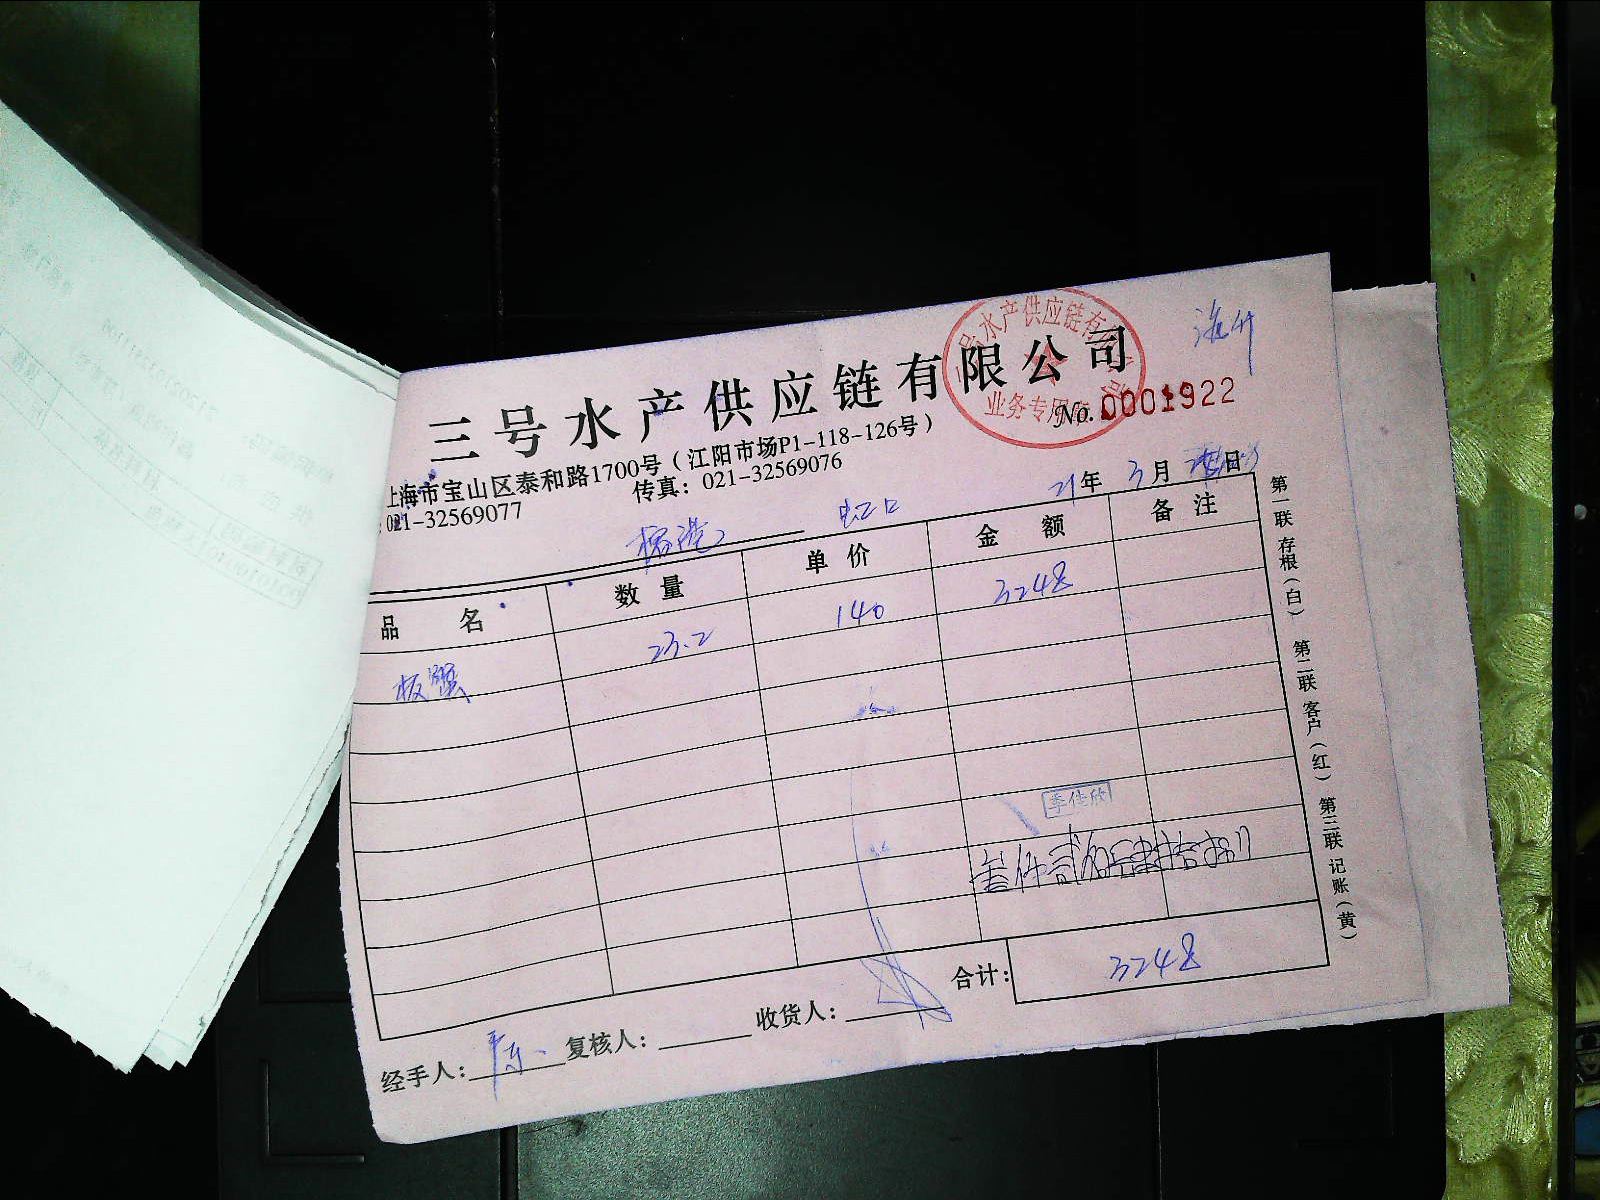 三号水产供应链有限公司
业务专用
No. 0001922
上海市宝山区泰和路1700号（江阳市场P1-118-126号）
021-32569077 传真：021-32569076
虹口 21年 3月 日
品名 数量 单价 金额 备注
板蟹 23.2 140 3248
季佳欣
叁仟贰佰肆拾捌
合计： 3248
经手人： 复核人： 收货人：
第一联 存根（白） 第二联 客户（红） 第三联 记账（黄）